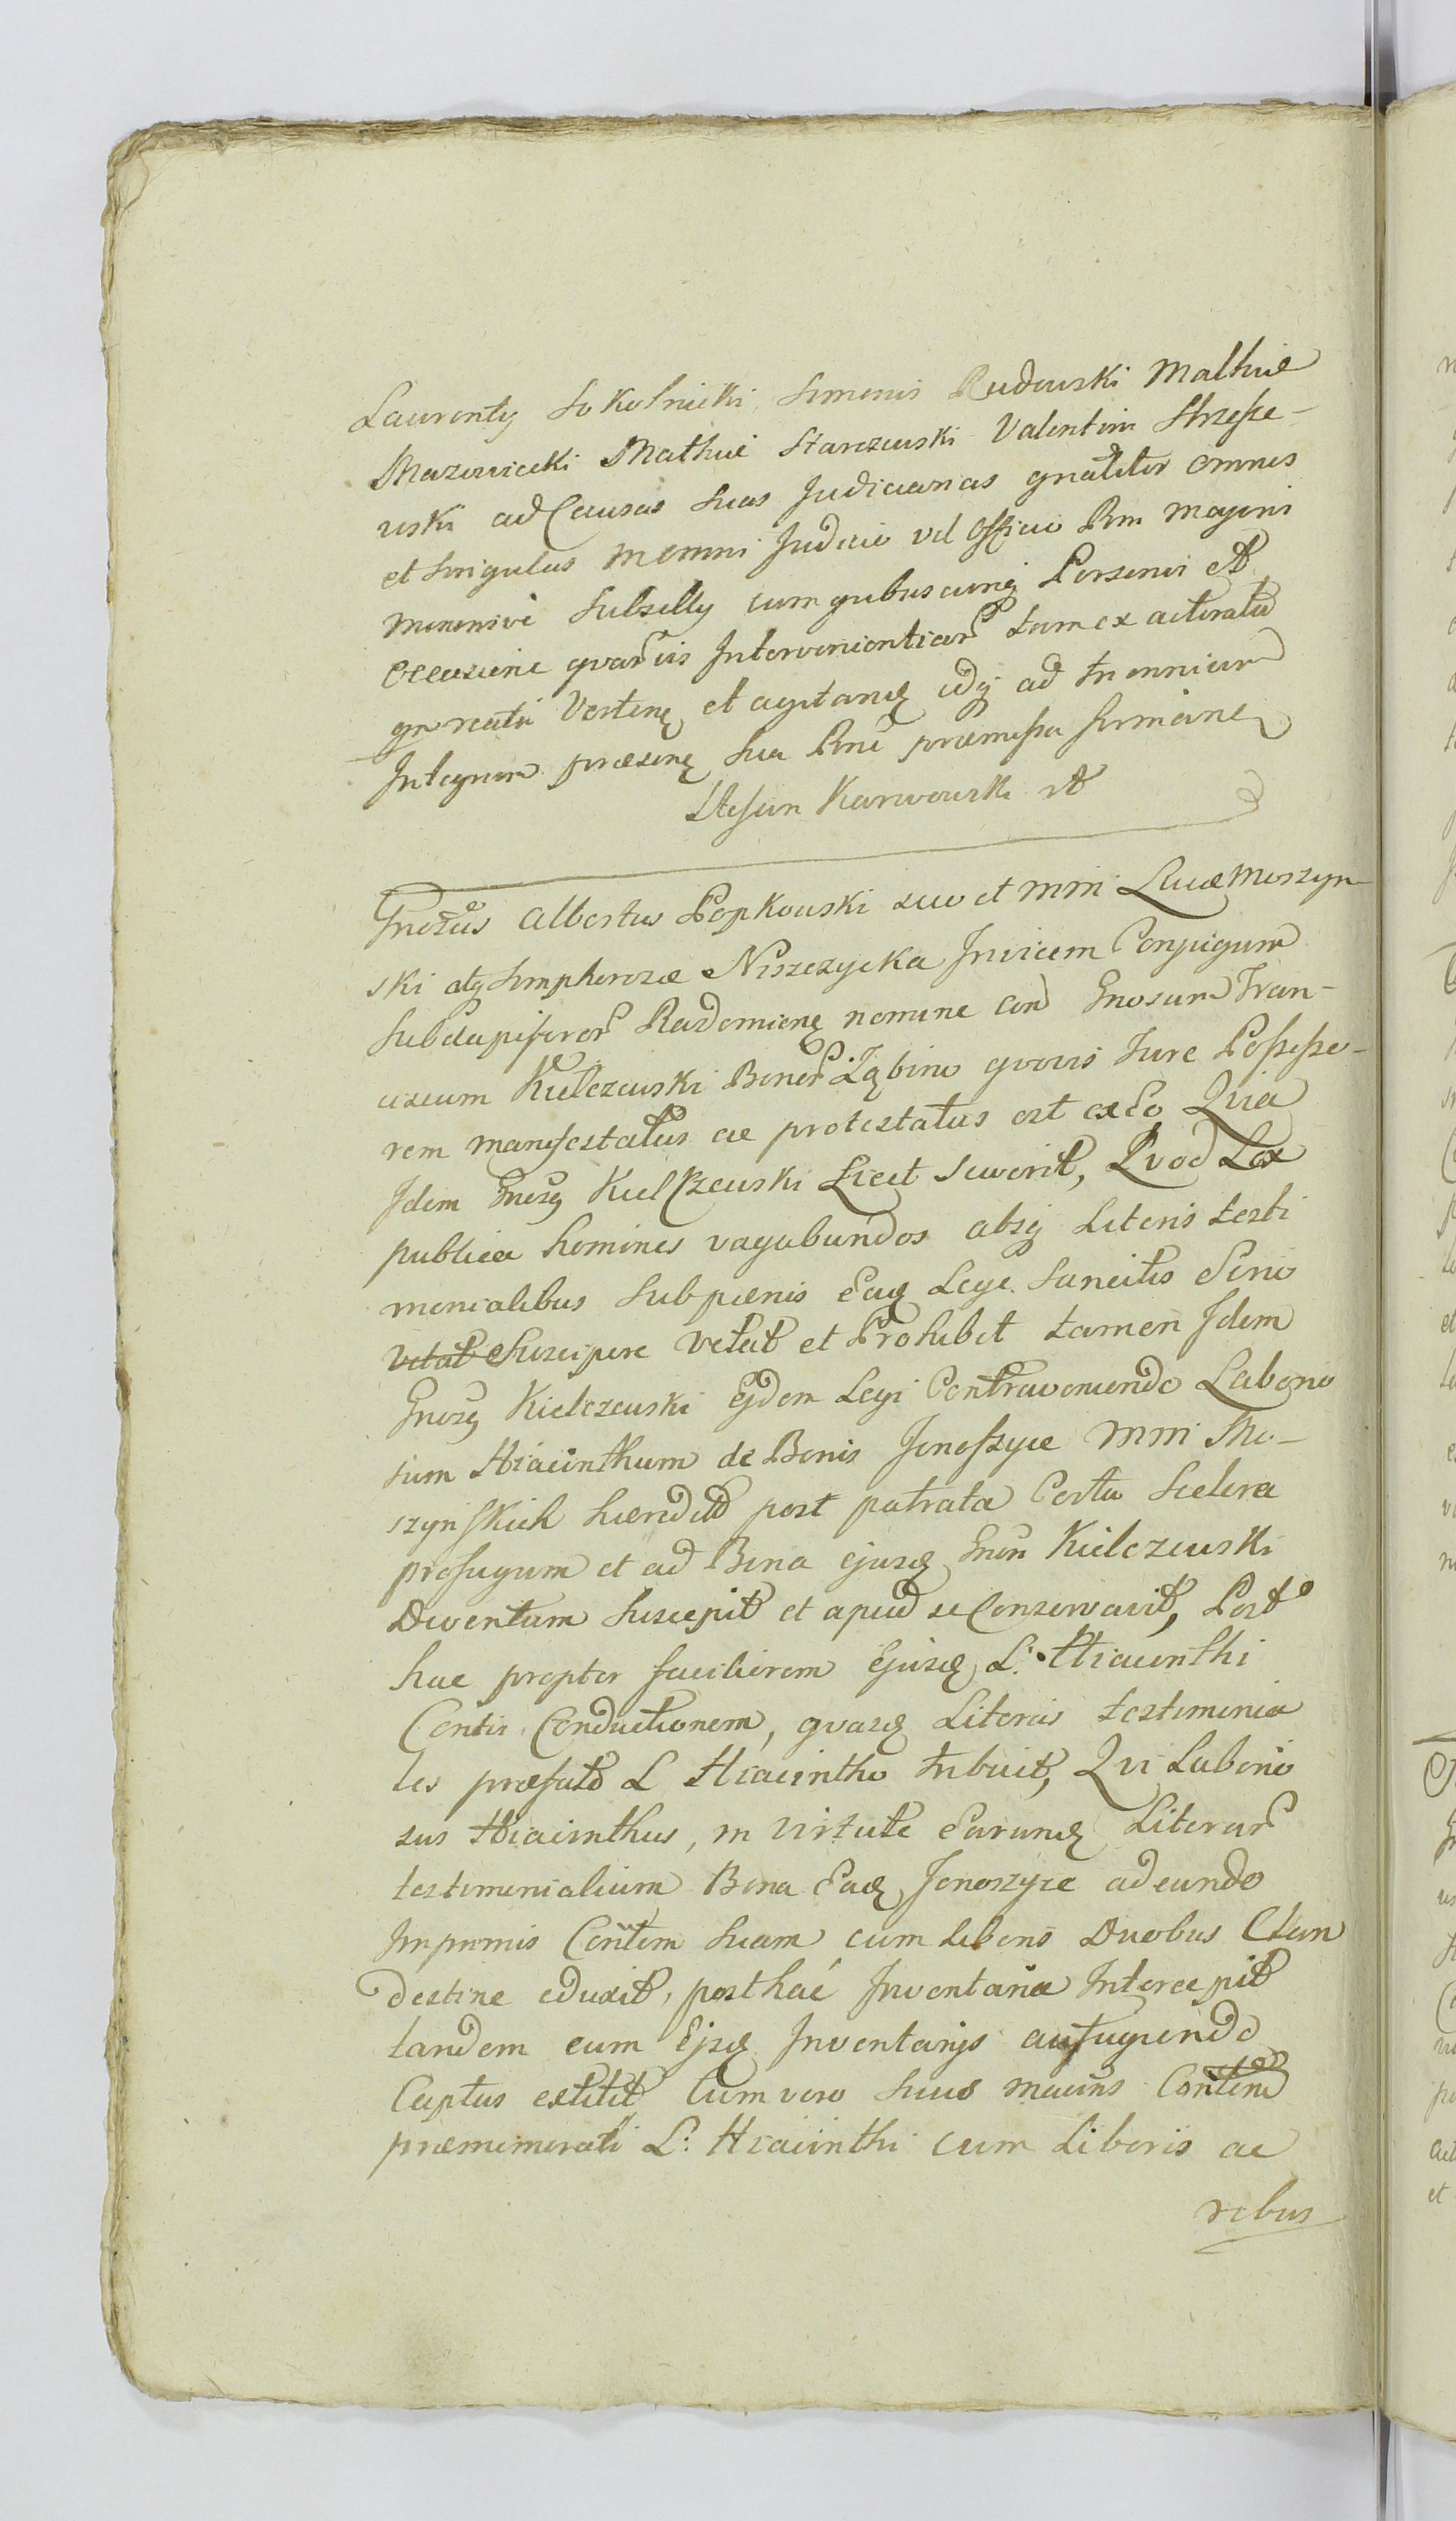 Laurenty Sokolnicki Simonis Rudowski Mathie
Mazowiecki Mathie Starczewski Valentini Strzesze-
wski ad Causas Suas Judiciarias gnaliter omnes
et singulas in omni Judicio vel Officio Rni Majoris
minorisve Subselly cum quibuscunq Personis et
occasione quarvis Intervenientiar tam ex actoratu
qm reatu Verten et agitan idq ad triennium
Integrum praesens Sua Rni praemissa firmiane
Stefan Karwowski st
Gnosus Albertus Popkowski suo et Mfri Lucae Moszyn-
ski atq Simphorosae Niszczycka Invicem Conjugum
Subdapiferor Radomien nomine con Gnosum Fran-
ciscum Kielczewski Bonor Zabino quovis Jure Possesso-
rem manifestatus ac protestatus est ex Eo Quia
Idem Gnosus Kielczewski Licet sciverit, Quod Lex
publica homines vagabundos absq Literis testi
monialibus Sub paenis Eadq Lege Sancitis Serio
vetat Suscipere Vetat et Prohibet tamen Idem
Gnosus Kielczewski Ejdem Legi Contraveniendo Laborio
sum Hiacinthum de Bonis Jonoszyce Mfri Mo-
szynskich haeredit post patrata Certa Scelera
profugum et ad Bona ejusd Gnosi Kielczewski
Diventum Suscepit et apud se Conservavit, Post
hac propter faciliorem Ejusd L: Hiacinthi
Contis Conductionem, quasd Literas testimonia
les praefato L Hiacintho tribuit, Qui Laborio
sus Hiacinthus, in virtute Earund Literar
testimonialium Bona Eadq Jonoszyce adeundo
Inprimis Contem Suam cum Liberis Duobus Clan
destine eduxit, post hac Inventaria Intercepit
tandem cum Ejsd Inventarys aufugiendo
Captus extitit Cum vero huius macins Contem
praememorati L: Hiacinthi cum Liberis ac
rebus